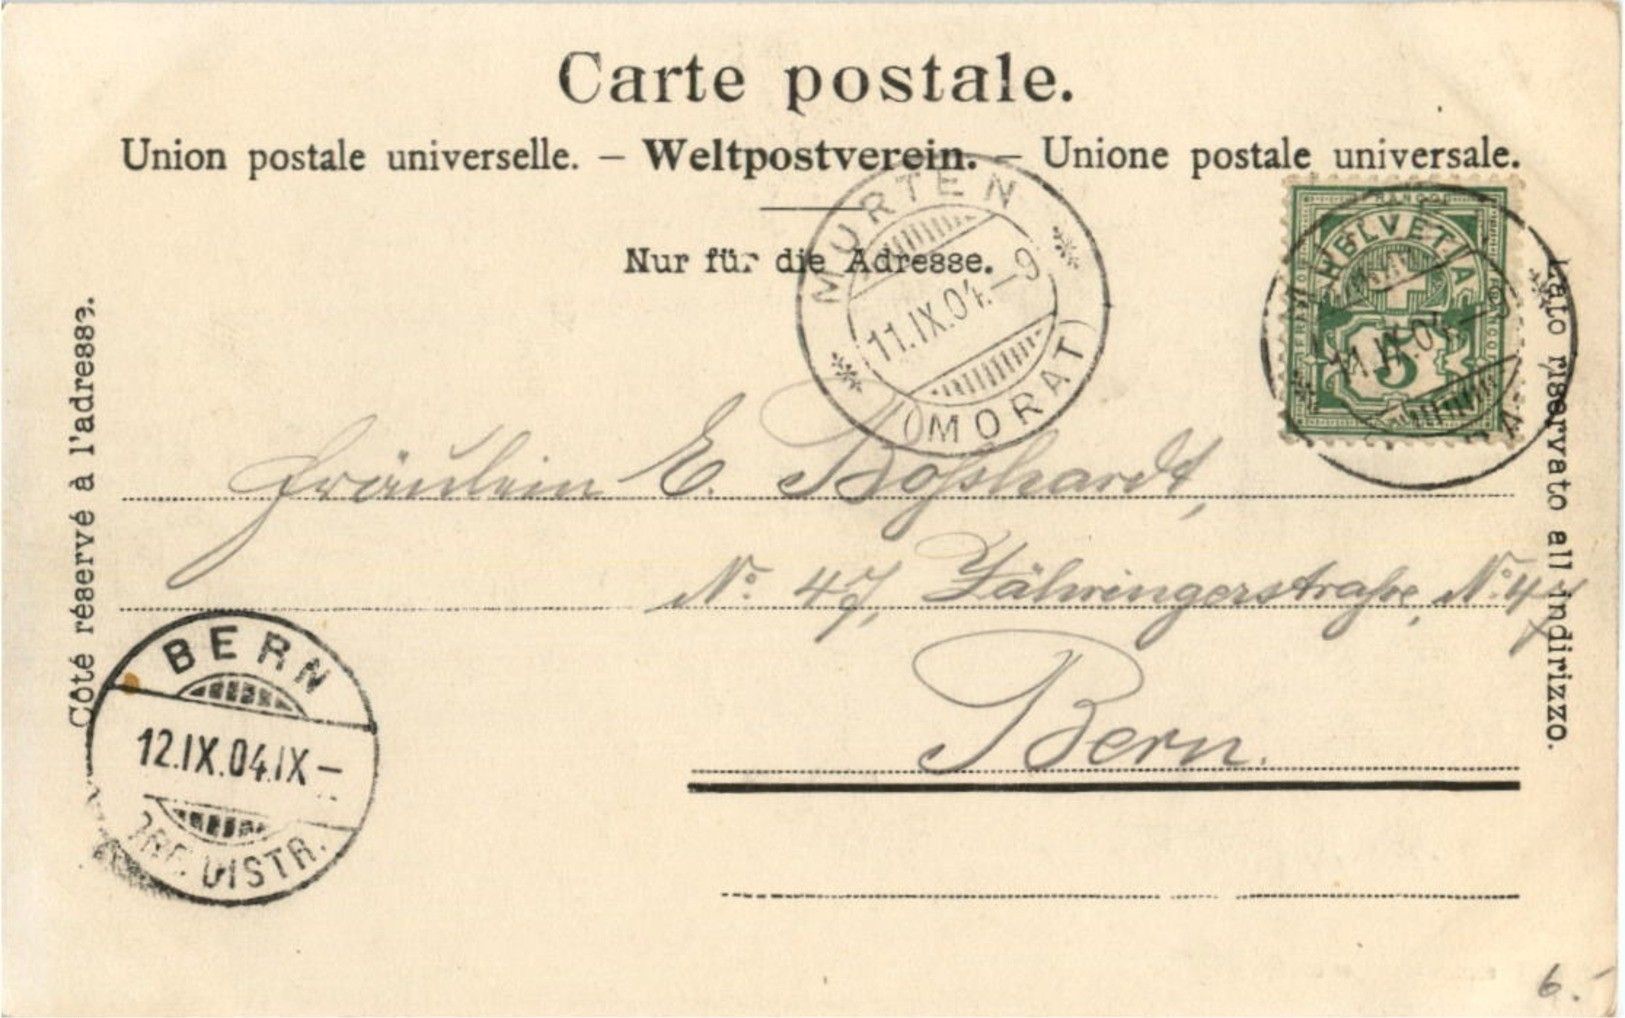 Carte postale.
Union postale universelle. – Weltpostverein. – Unione postale universale.
Nur für die Adresse.
Côté réservé à l'adresse.
Lato riservato all'indirizzo.
MURTEN
11.IX.04.–9
(MORAT)
HELVETIA
5
11.IX.04.–9
Fräulein E. Boßhardt,
No. 47, Zähringerstraße, No. 47
Bern.
BERN
12.IX.04.IX–
DISTR.
6.-